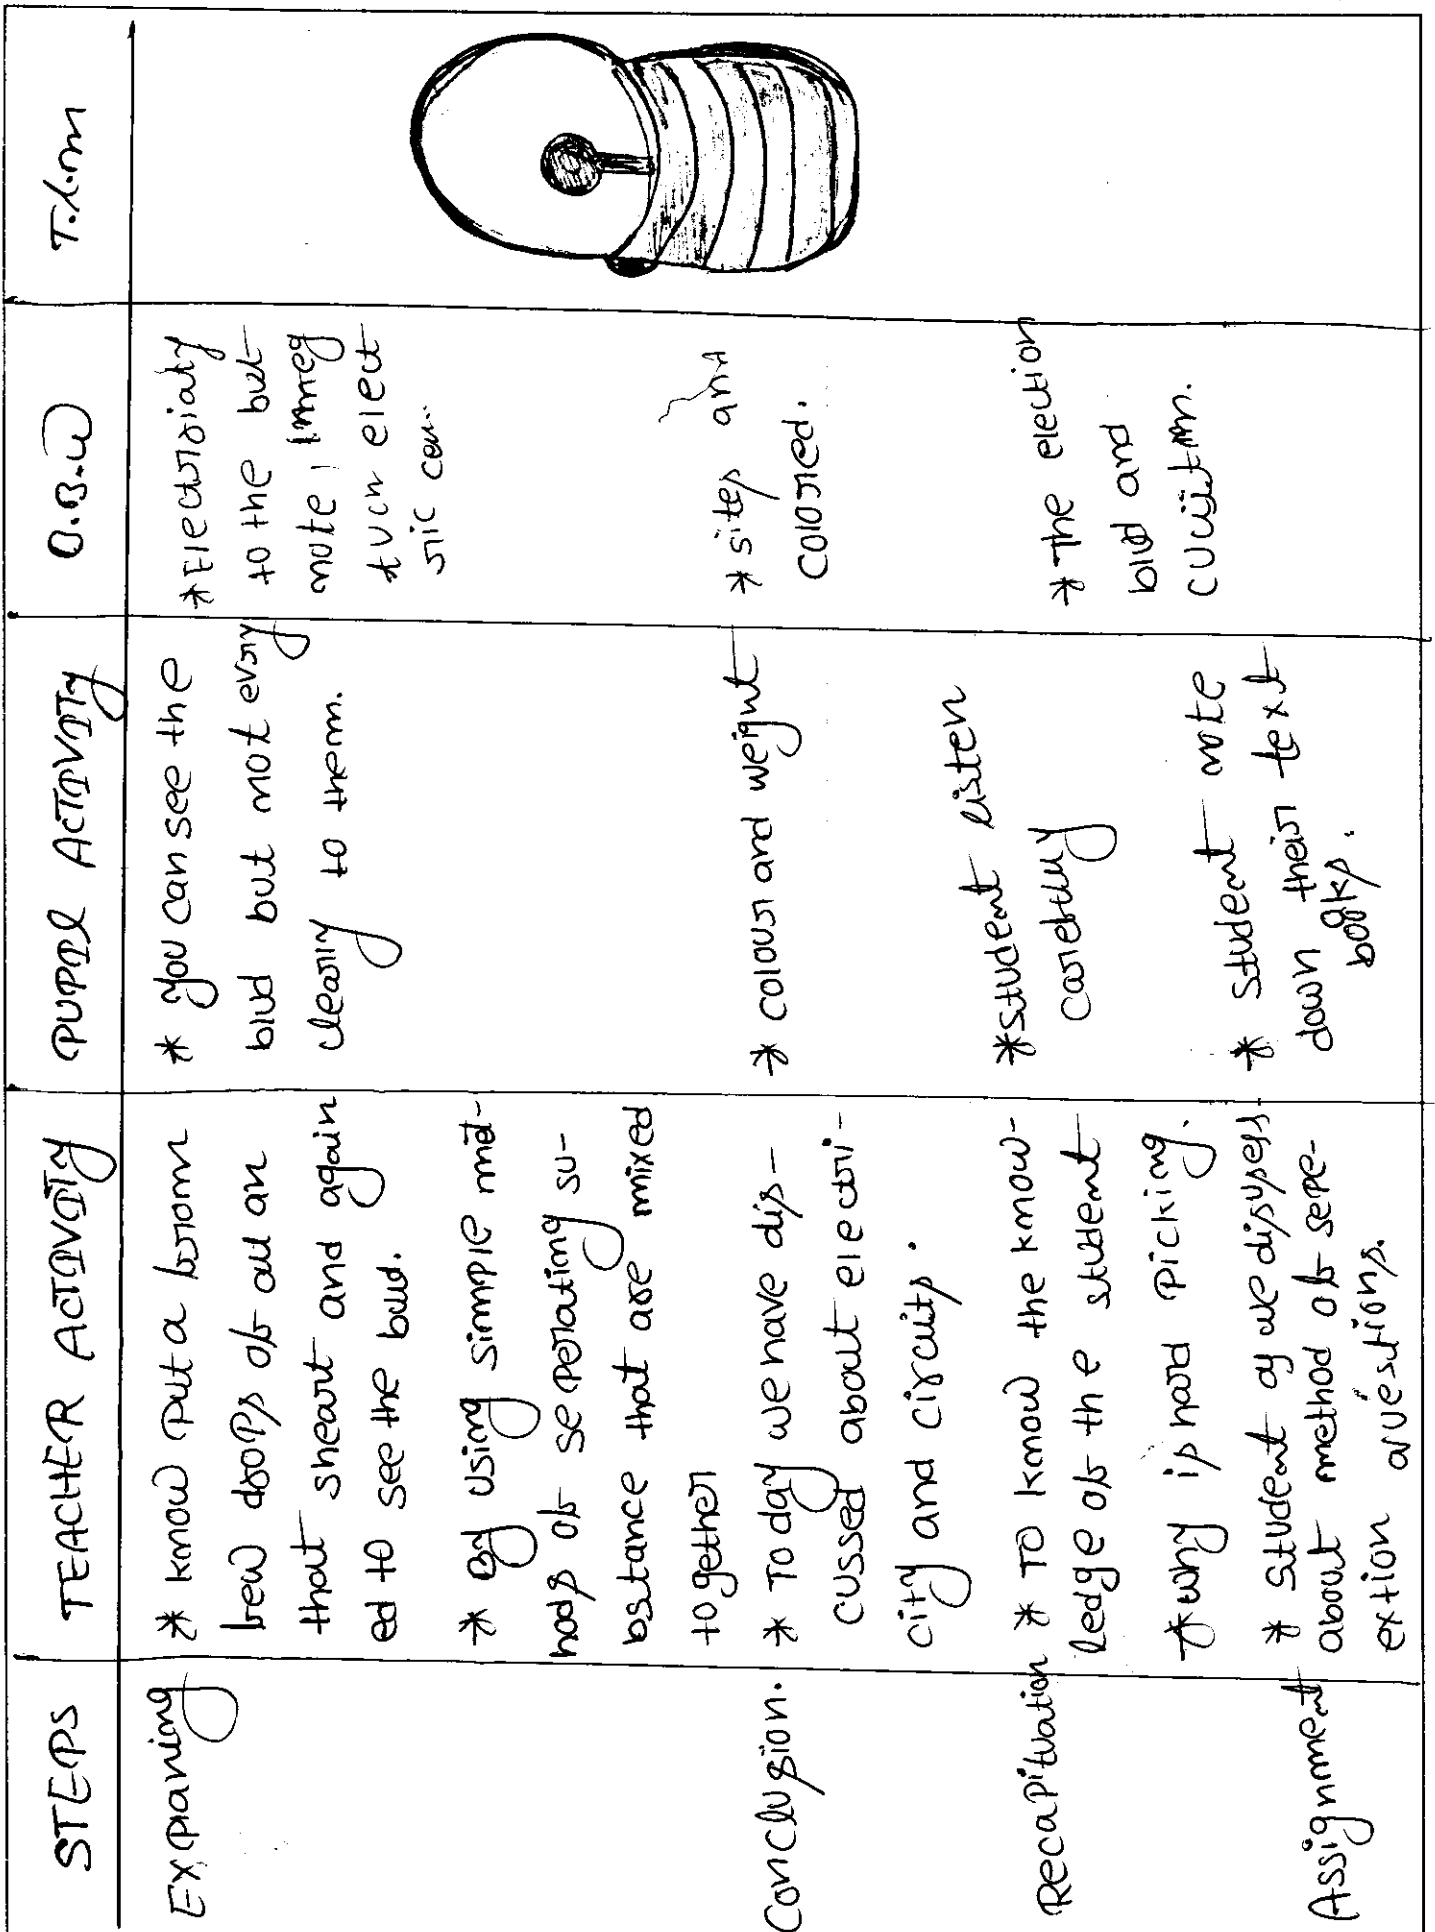 STEPS
TEACHER ACTIVITY
PUPIL ACTIVITY
O.B.W
T.L.m
Explaning
* know put a brown
few drops of oil an
that sheart and again
ed to see the
* By using simple met-
hods of seperating su-
bstance that are mixed
together
* You can see the
blud but not every
clearly to them.
* Electriciaty
to the but
note,
elect
Conclusion.
* To day we have dis-
cussed about electri-
city and circuits.
* colour and weight
* sites and
colored.
Recapitulation
* To know the know-
ledge of the student
* why is hard picking.
* student listen
carefully
* The election
blud and
Assignment
* student
about method of sepe-
extion
* student note
down their text
books.